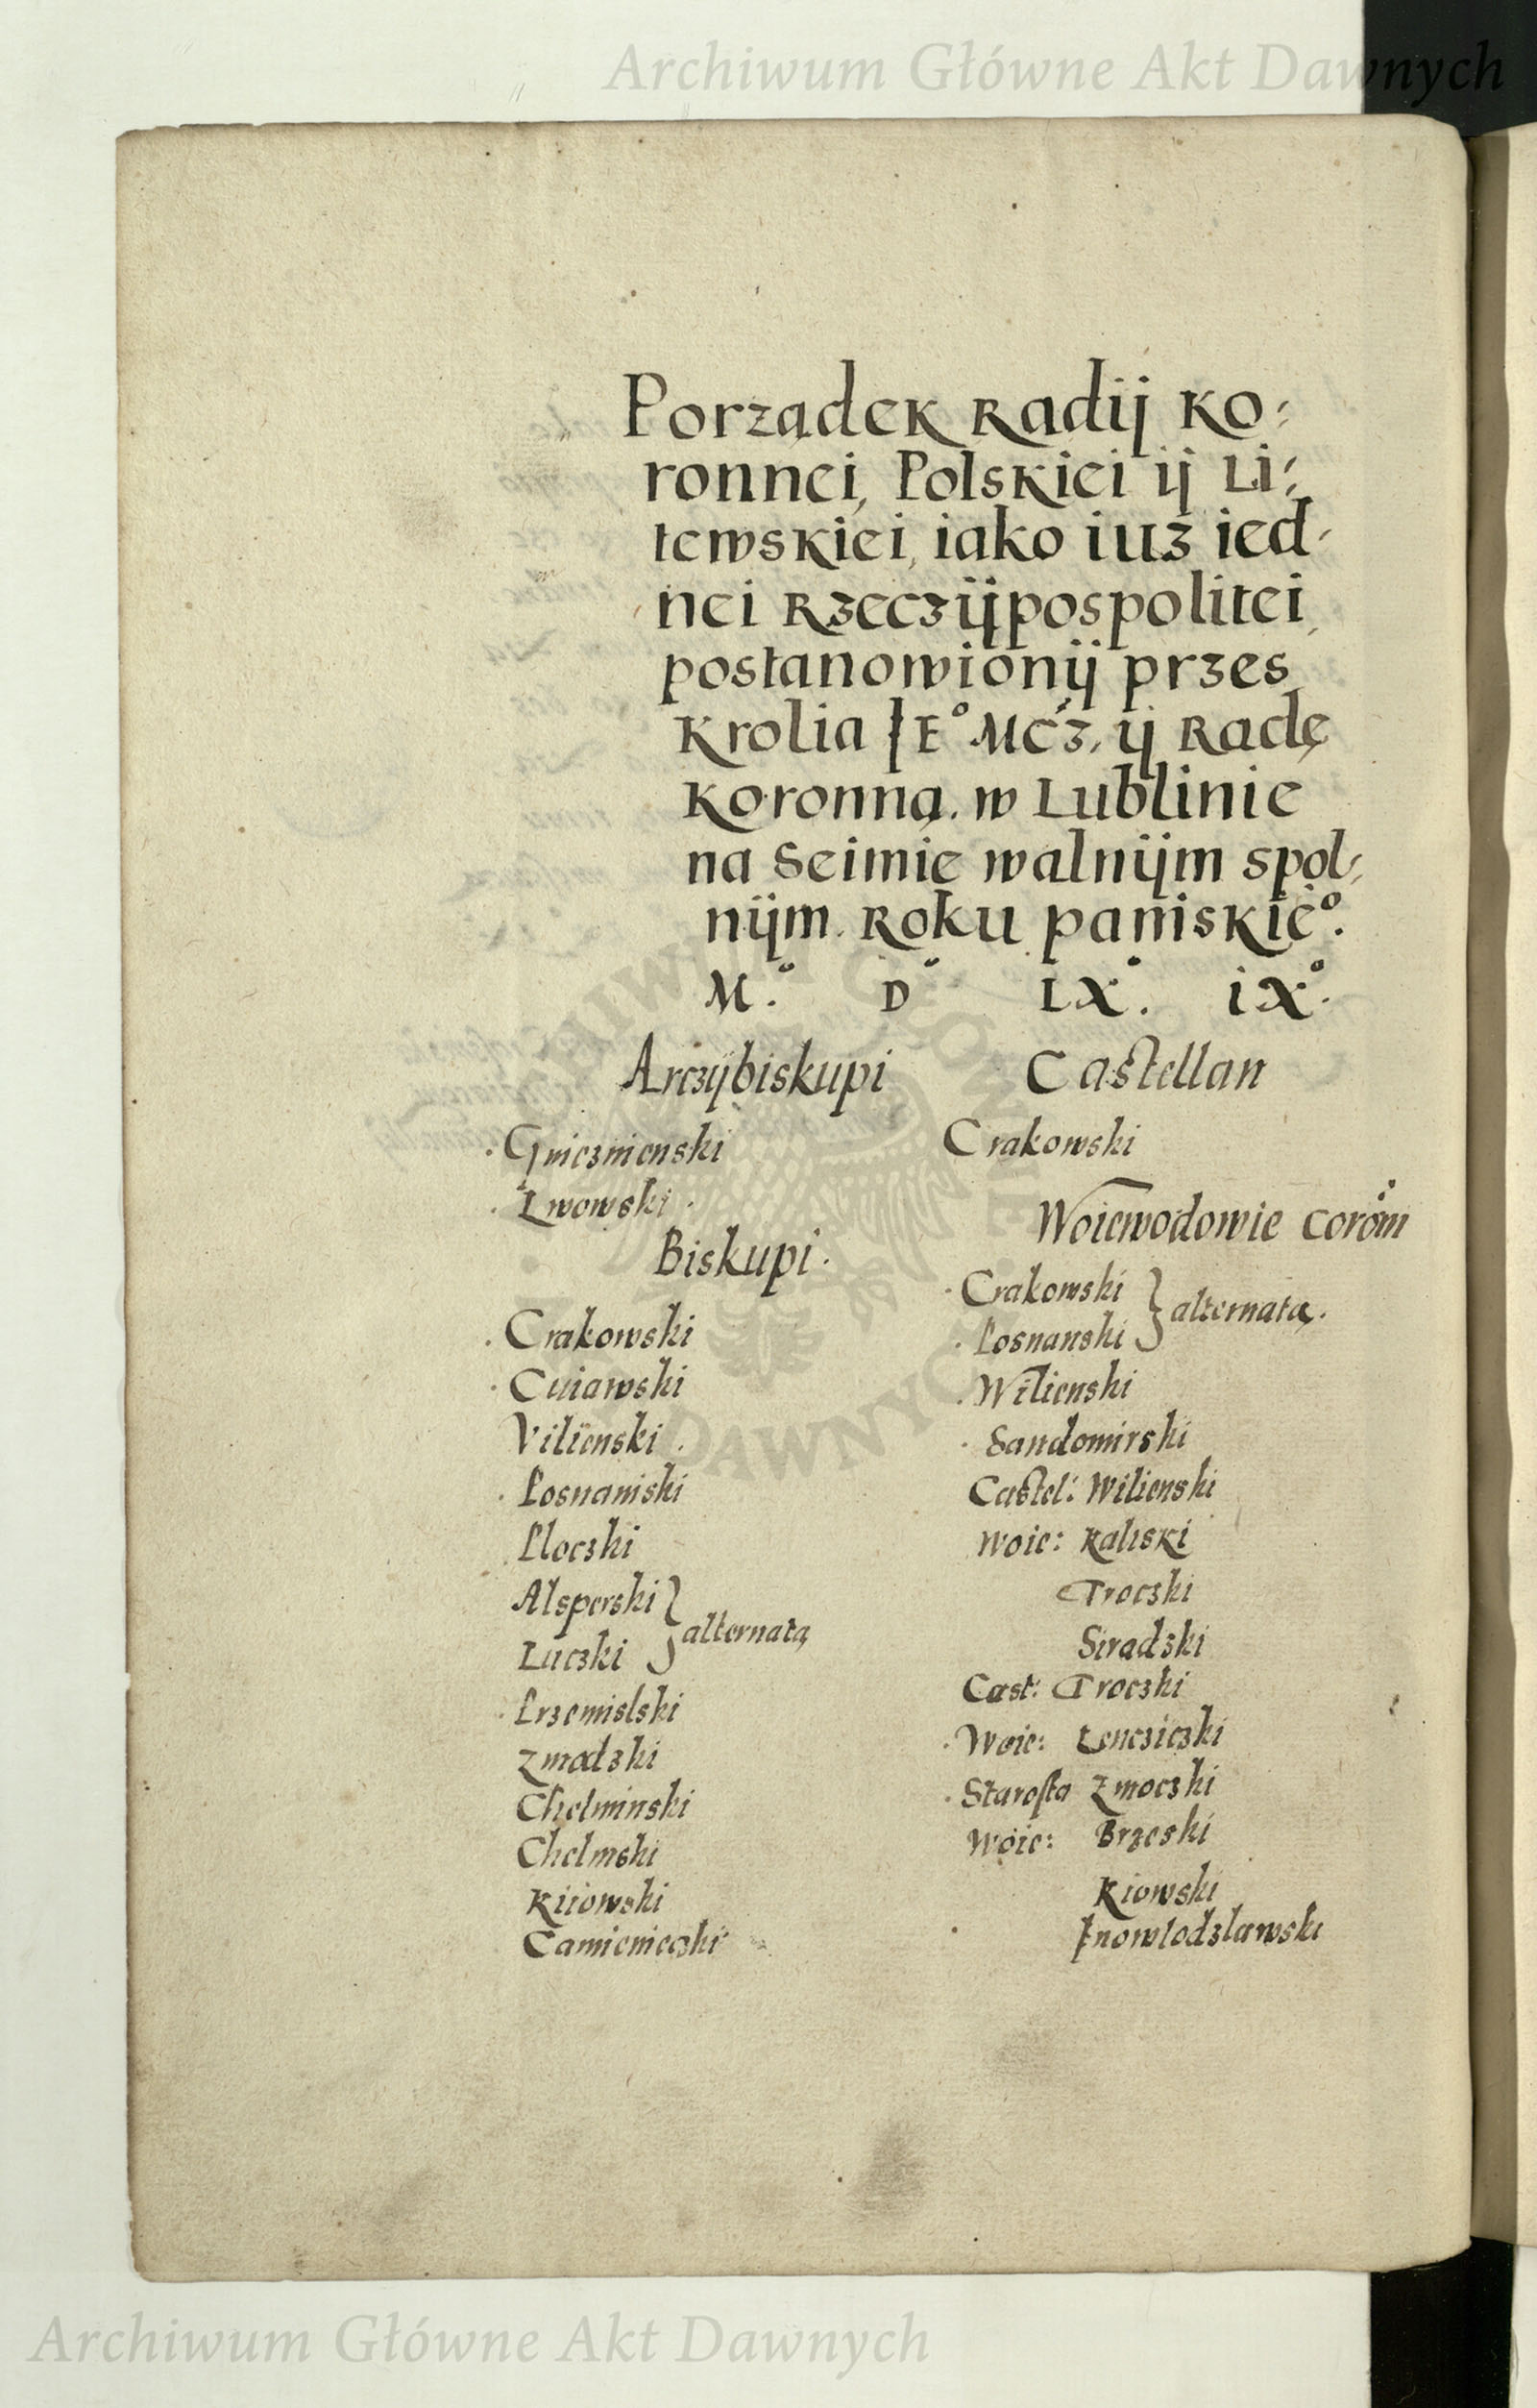 Archiwum Główne Akt Dawnych
Porządek Radij Ko:
ronnei, Polskiei ij Li:
tewskiei, iako iuż ied-
nei Rzeczijpospolitei,
postanowionij przes
Krolia JE° MCz, ij Radę
Koronną. w Lublinie
na Seimie walnijm spol-
nijm. Roku paniskie°.
M.° D° LX.° iX.°
Arczijbiskupi
Gnieznienski
Lwowski
Biskupi.
Crakowski
Cuiawski
Vilienski
Posnaniski
Ploczki
Alsperski } alternatą
Luczki
Przemislski
Zmodzki
Chelminski
Chelmski
Kiiowski
Camienieczki
Castellan
Crakowski
Woiewodowie coron
Crakowski } alternatą.
Posnanski
Wilienski
Sandomirski
Castel: Wilienski
Woie: Kaliski
Troczki
Siradzki
Cast: Troczki
Woie: Lencziczki
Starosta Zmoczki
Woie: Brzeski
Kiowski
Inowlodzlawski
Archiwum Główne Akt Dawnych